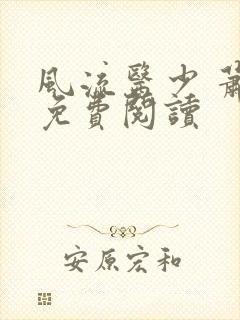 風流醫少 蕭
免費閱讀
安原宏和